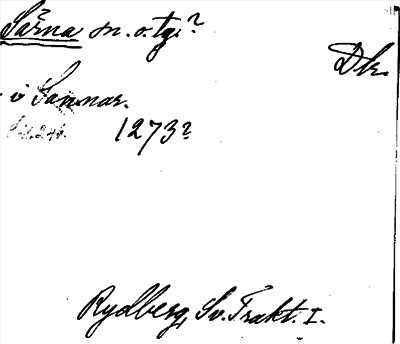 Särna sn. o. tg.?
Dlr.
i Sarnar.
1273?
Rydberg, Sv. Trakt. I.